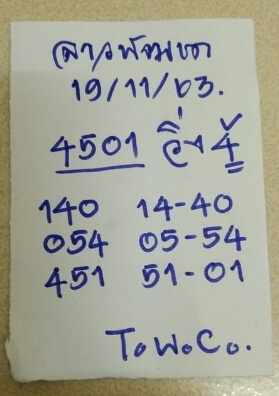 ลาวพัฒนา
19/11/63.
4501 วิ่ง 4
140 14-40
054 05-54
451 51-01
ToWoCo.